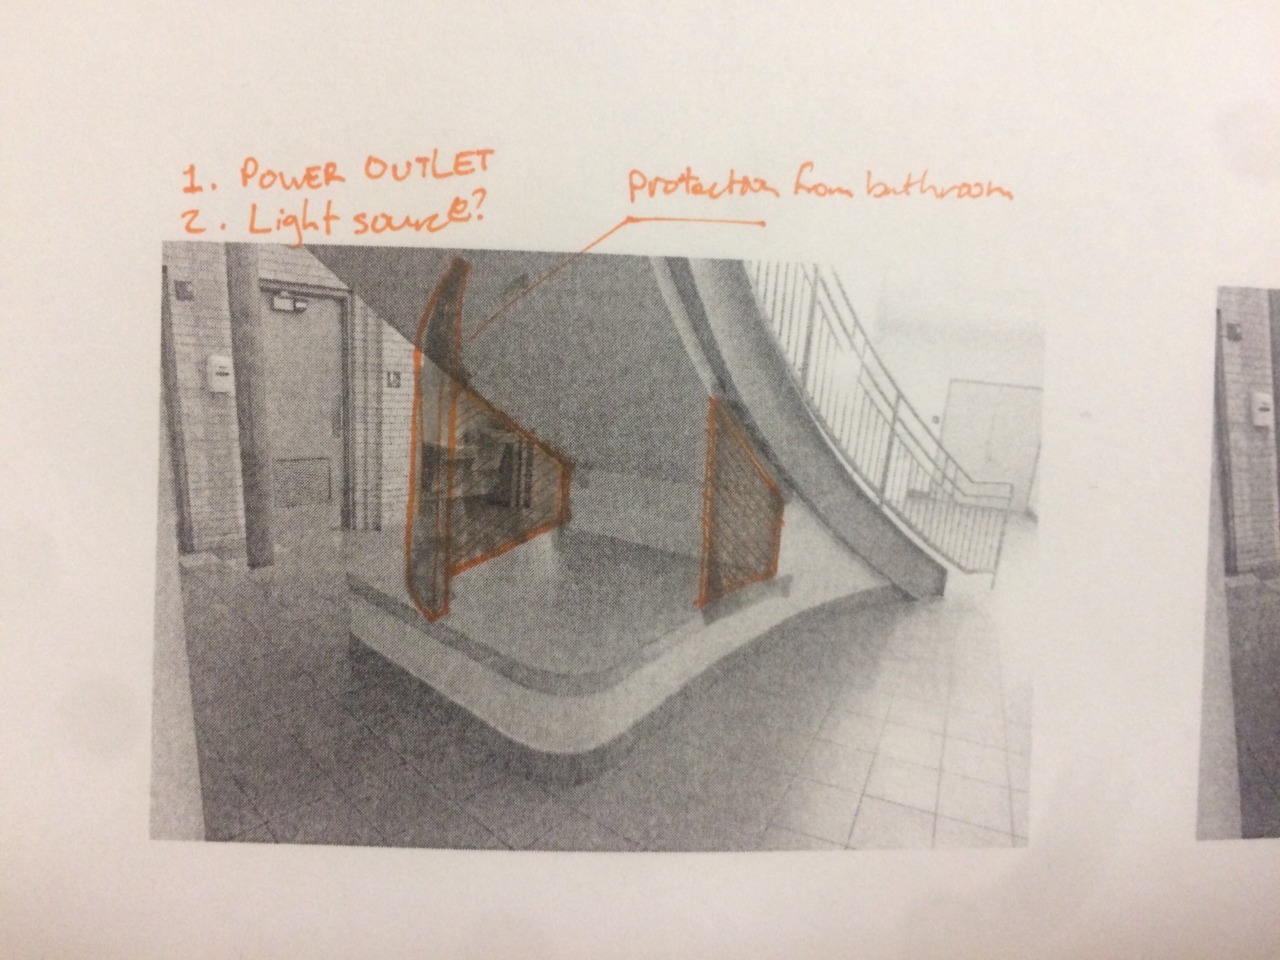 1. POWER OUTLET
2. Light source?
Protection from bathroom